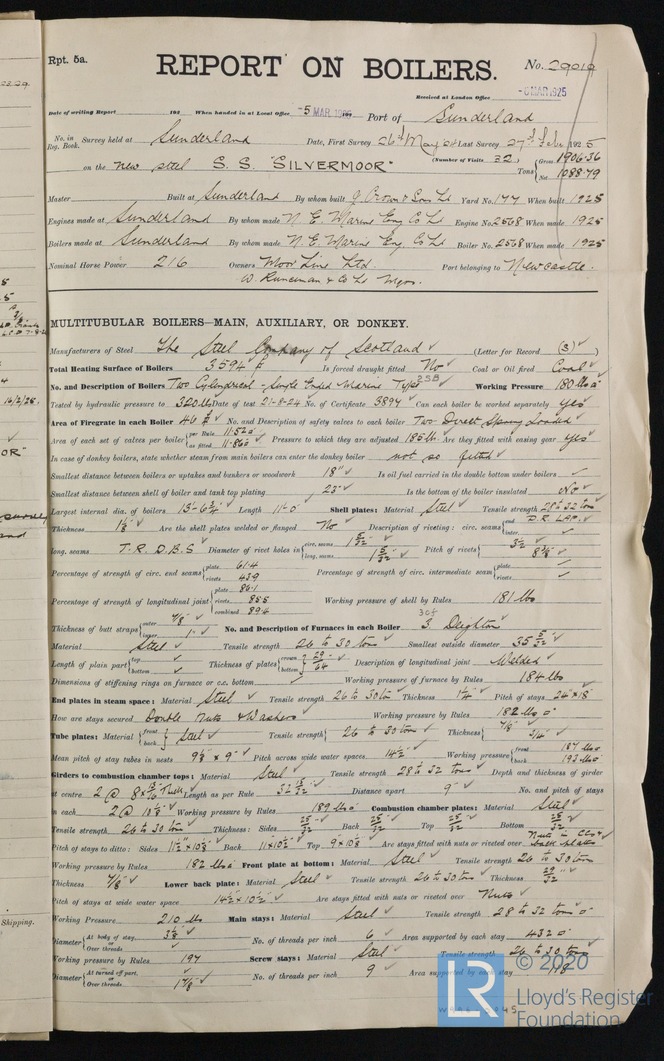 Rpt. 5a.
REPORT ON BOILERS.
No. 29010
Received at London Office -6 MAR 1925
Date of writing Report 192 When handed in at Local Office -5 MAR 192 Port of Sunderland
No. in Reg. Book. Survey held at Sunderland Date, First Survey 26th May 24 Last Survey 27th Feb 1925
on the New Steel S.S. "SILVERMOOR" (Number of Visits 32) Tons Gross 1906.36 Net 1088.79
Master Built at Sunderland By whom built J. Crown & Sons Ld Yard No. 177 When built 1925
Engines made at Sunderland By whom made N. E. Marine Eng Co Ld Engine No. 2568 When made 1925
Boilers made at Sunderland By whom made N. E. Marine Eng Co Ld Boiler No. 2568 When made 1925
Nominal Horse Power 216 Owners Moor Line Ltd. Port belonging to Newcastle.
W. Runciman & Co Ld Mgrs.
MULTITUBULAR BOILERS—MAIN, AUXILIARY, OR DONKEY.
Manufacturers of Steel The Steel Company of Scotland (Letter for Record (S))
Total Heating Surface of Boilers 3594 Is forced draught fitted No Coal or Oil fired Coal
No. and Description of Boilers Two Cylindrical - Single Ended Marine Type 2SB Working Pressure 180 lbs
Tested by hydraulic pressure to 320 lbs Date of test 21-8-24 No. of Certificate 3894 Can each boiler be worked separately yes
Area of Firegrate in each Boiler 46 No. and Description of safety valves to each boiler Two Direct Spring Loaded
Area of each set of valves per boiler per Rule as fitted Pressure to which they are adjusted 185 lb Are they fitted with easing gear yes
In case of donkey boilers, state whether steam from main boilers can enter the donkey boiler not so fitted
Smallest distance between boilers or uptakes and bunkers or woodwork 18" Is oil fuel carried in the double bottom under boilers
Smallest distance between shell of boiler and tank top plating 25" Is the bottom of the boiler insulated No
Largest internal dia. of boilers Length 11'-0 Shell plates: Material Steel Tensile strength 28 to 32 tons
Thickness 1 1/8 Are the shell plates welded or flanged No Description of riveting: circ. seams end D.R. LAP. inter.
long. seams T.R. D.B.S Diameter of rivet holes in circ. seams 1 5/32 long. seams 1 5/32 Pitch of rivets
Percentage of strength of circ. end seams plate 61.4 rivets 43.9 Percentage of strength of circ. intermediate seam plate rivets
Percentage of strength of longitudinal joint plate rivets 85.5 combined 89.4 Working pressure of shell by Rules 181 lbs
Thickness of butt straps outer 7/8 inner 1" No. and Description of Furnaces in each Boiler 3 Deighton
Material Steel Tensile strength 26 to 30 tons Smallest outside diameter 35 5/32
Length of plain part top bottom Thickness of plates crown bottom 29/64 Description of longitudinal joint Welded
Dimensions of stiffening rings on furnace or c.c. bottom Working pressure of furnace by Rules 184 lbs
End plates in steam space: Material Steel Tensile strength 26 to 30 tons Thickness Pitch of stays 24 x 18
How are stays secured Double Nuts & Washers Working pressure by Rules 182 lbs
Tube plates: Material front back Steel Tensile strength 26 to 30 tons Thickness 7/8 3/4
Mean pitch of stay tubes in nests 9 3/8 x 9" Pitch across wide water spaces 14 1/2 Working pressure front 187 lbs back 193 lbs
Girders to combustion chamber tops: Material Steel Tensile strength 28 to 32 tons Depth and thickness of girder
at centre Length as per Rule Distance apart 9" No. and pitch of stays
in each 2 @ 10 1/8 Working pressure by Rules 189 lbs Combustion chamber plates: Material Steel
Tensile strength 26 to 30 tons Thickness: Sides 25/32 Back 25/32 Top 25/32 Bottom 25/32
Pitch of stays to ditto: Sides Back Top Are stays fitted with nuts or riveted over
Working pressure by Rules 182 lbs Front plate at bottom: Material Steel Tensile strength 26 to 30 tons
Thickness 7/8 Lower back plate: Material Steel Tensile strength 26 to 30 tons Thickness
Pitch of stays at wide water space Are stays fitted with nuts or riveted over Nuts
Working Pressure 210 lbs Main stays: Material Steel Tensile strength 28 to 32 tons
Diameter At body of stay or Over threads No. of threads per inch 6 Area supported by each stay 432
Working pressure by Rules 197 Screw stays: Material Steel Tensile strength 26 to 30 tons
Diameter At turned off part or Over threads No. of threads per inch 9 Area supported by each stay
© 2020
Lloyd's Register
Foundation
Shipping.